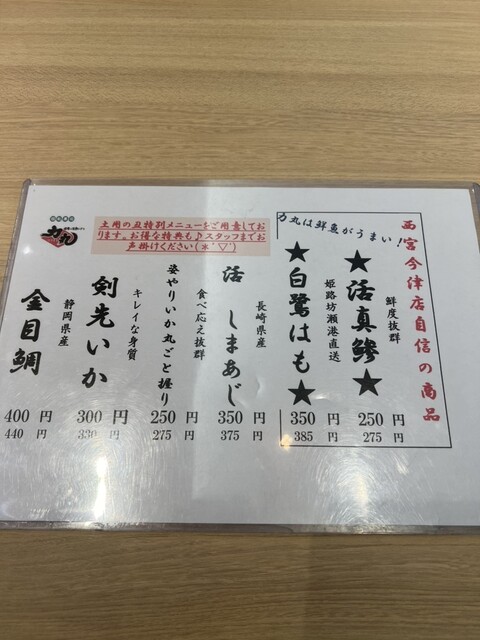 西宮今津店自信の商品
力丸は鮮魚がうまい！
鮮度抜群
★活真鯵★
250 円
275 円
姫路坊瀬港直送
★白鷺はも★
350 円
385 円
長崎県産
活 しまあじ
350 円
375 円
食べ応え抜群
姿やりいか丸ごと握り
250 円
275 円
キレイな身質
剣先いか
300 円
330 円
静岡県産
金目鯛
400 円
440 円
土用の丑特別メニューをご用意してお
ります。お得な特典も♪スタッフまでお
声掛けください(*'▽')
力丸